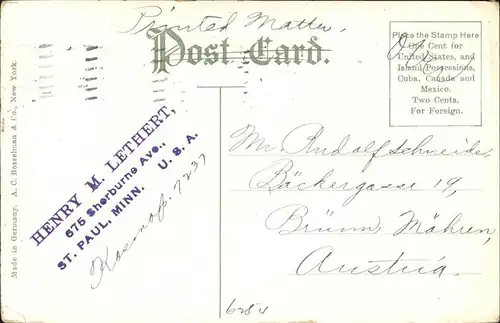 Printed Matter.
Post Card.
Place the Stamp Here
One Cent for
United States, and
Island Possessions,
Cuba, Canada and
Mexico.
Two Cents.
For Foreign.
Made in Germany. A. C. Bosselman & Co., New York.
HENRY M. LETHERT,
675 Sherburne Ave.,
ST. PAUL, MINN. U. S. A.
7237
Mr. Rudolf Schneider,
Bäckergasse 19,
Brünn, Mähren,
Austria.